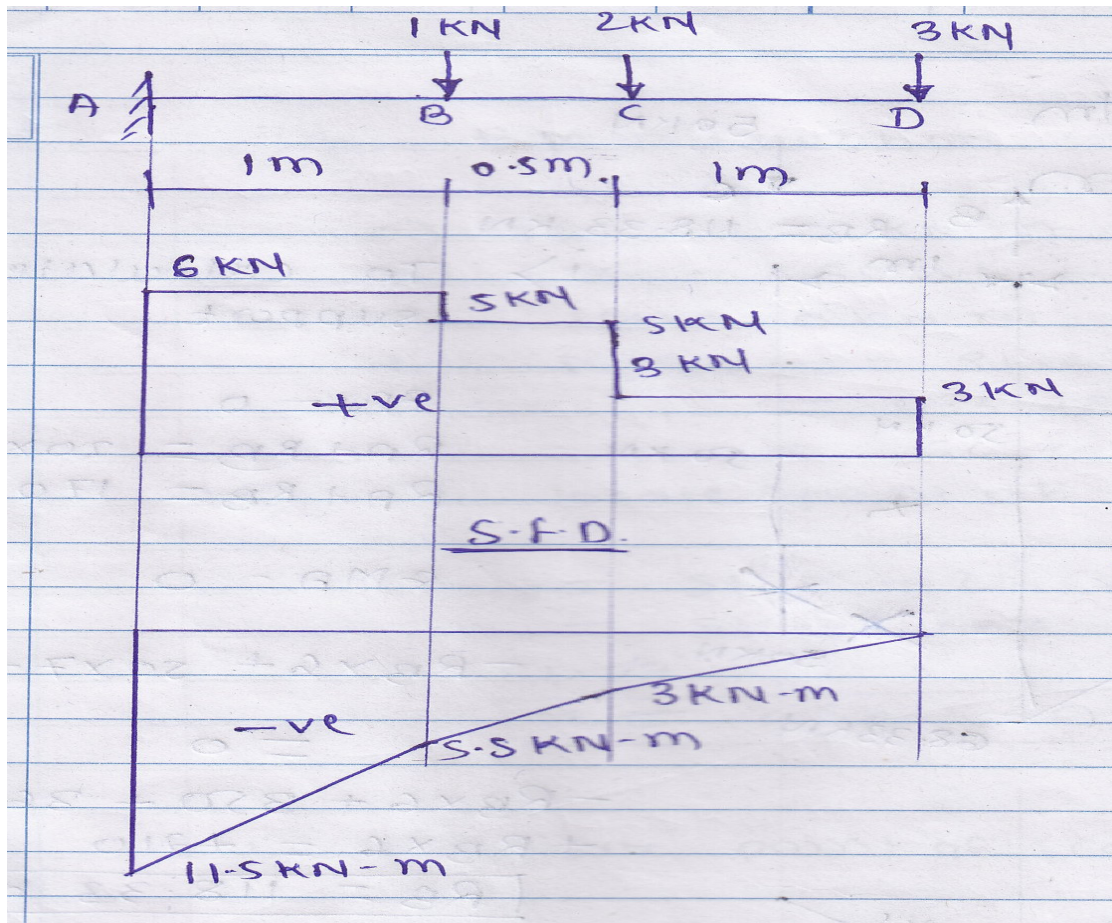 1 KN 2KN 3KN
A B C D
1 m 0.5m. 1m.
6 KN
5KN
5KN
3 KN
3KN
+ve
S.F.D.
3KN-m
-ve
5.5KN-m
11.5KN-m